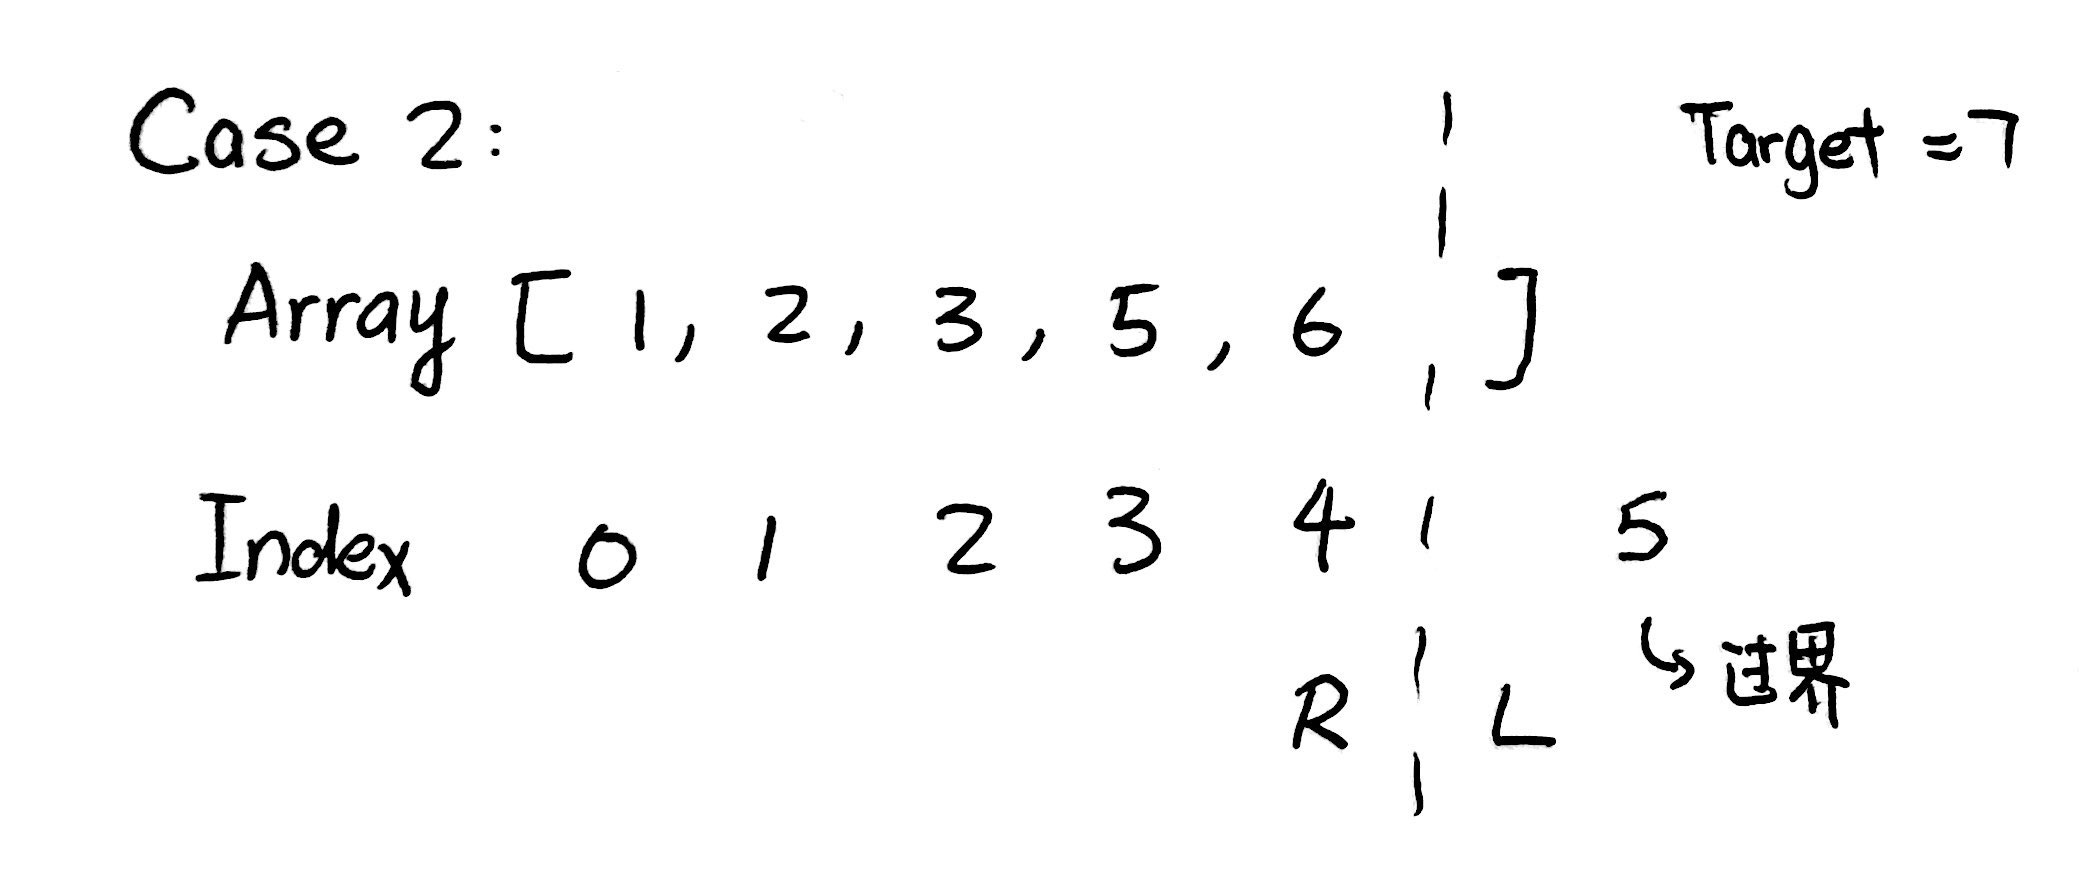 Case 2:
Target = 7
Array [ 1, 2, 3, 5, 6 ]
Index 0 1 2 3 4 5
↳ 过界
R L